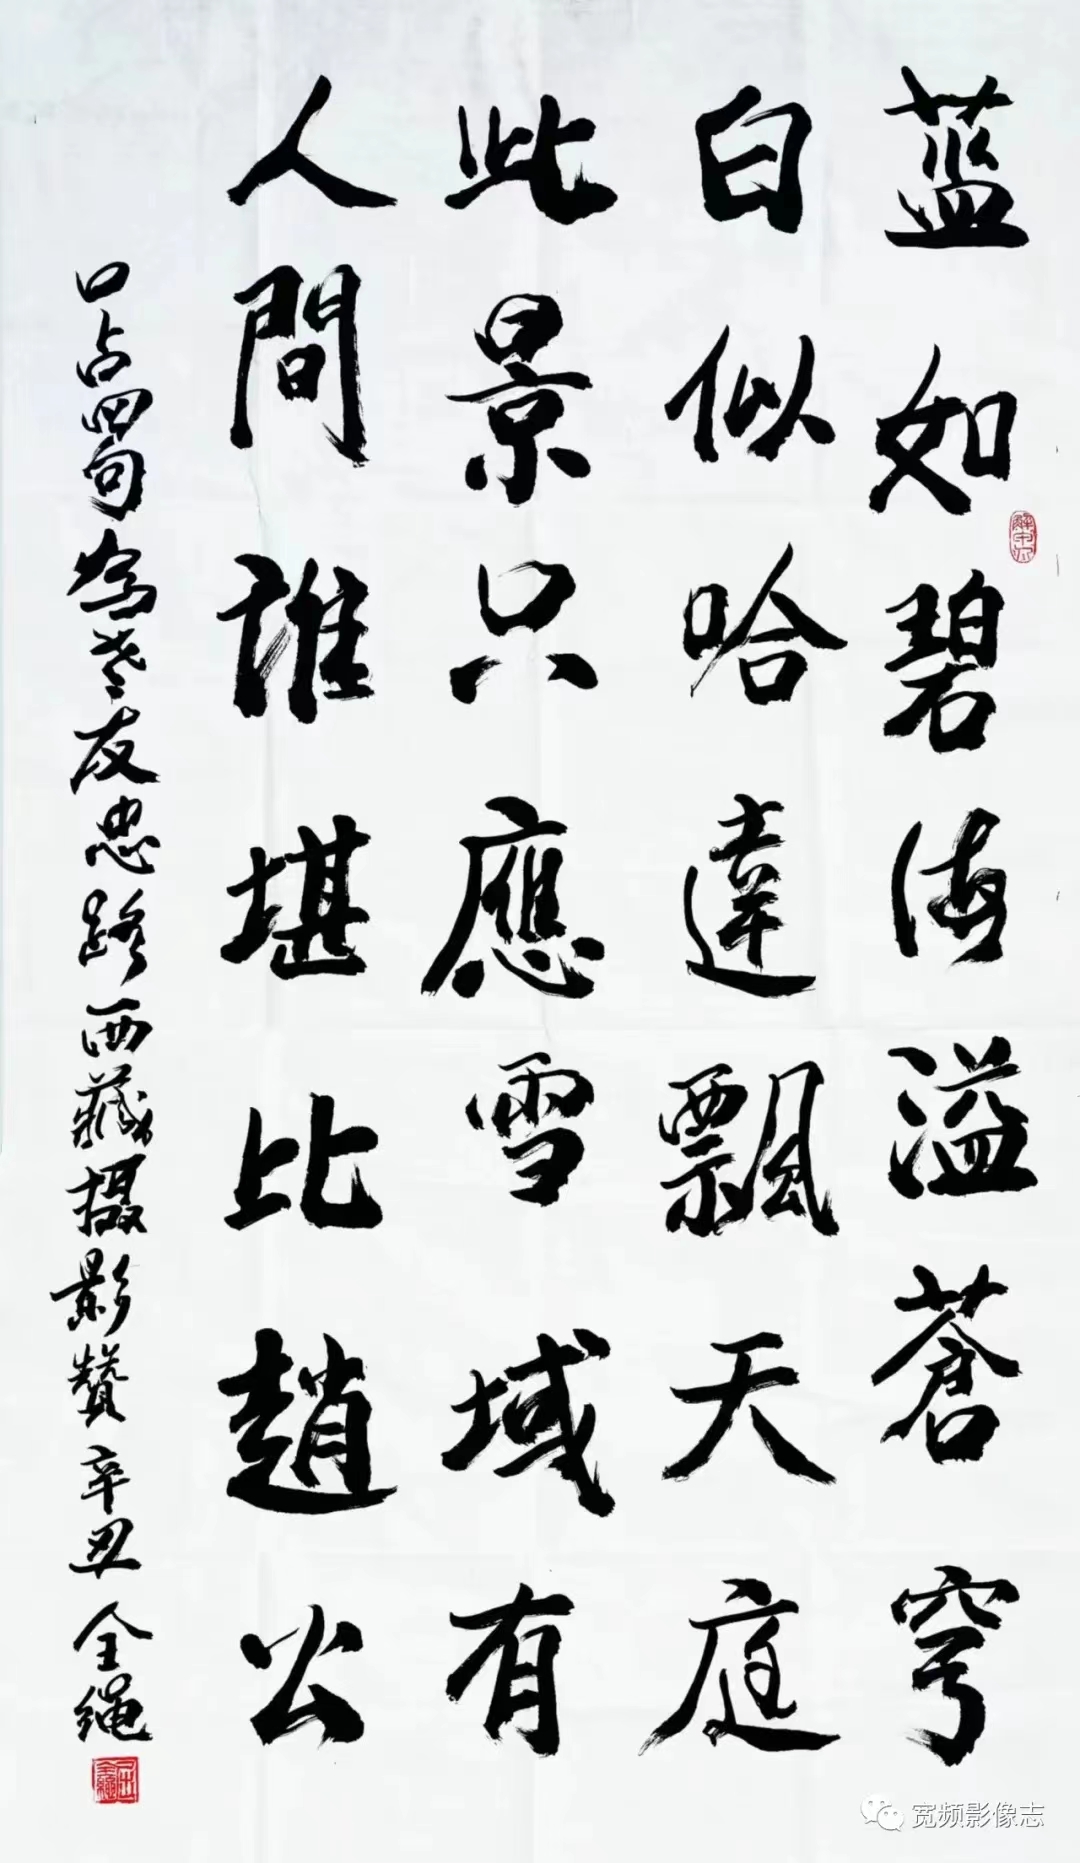 藍如碧海溢蒼穹
白似哈達飄天庭
此景只應雪域有
人間誰堪比趙公
口占四句為老友忠路西藏摄影贊 辛丑 全绳
宽频影像志